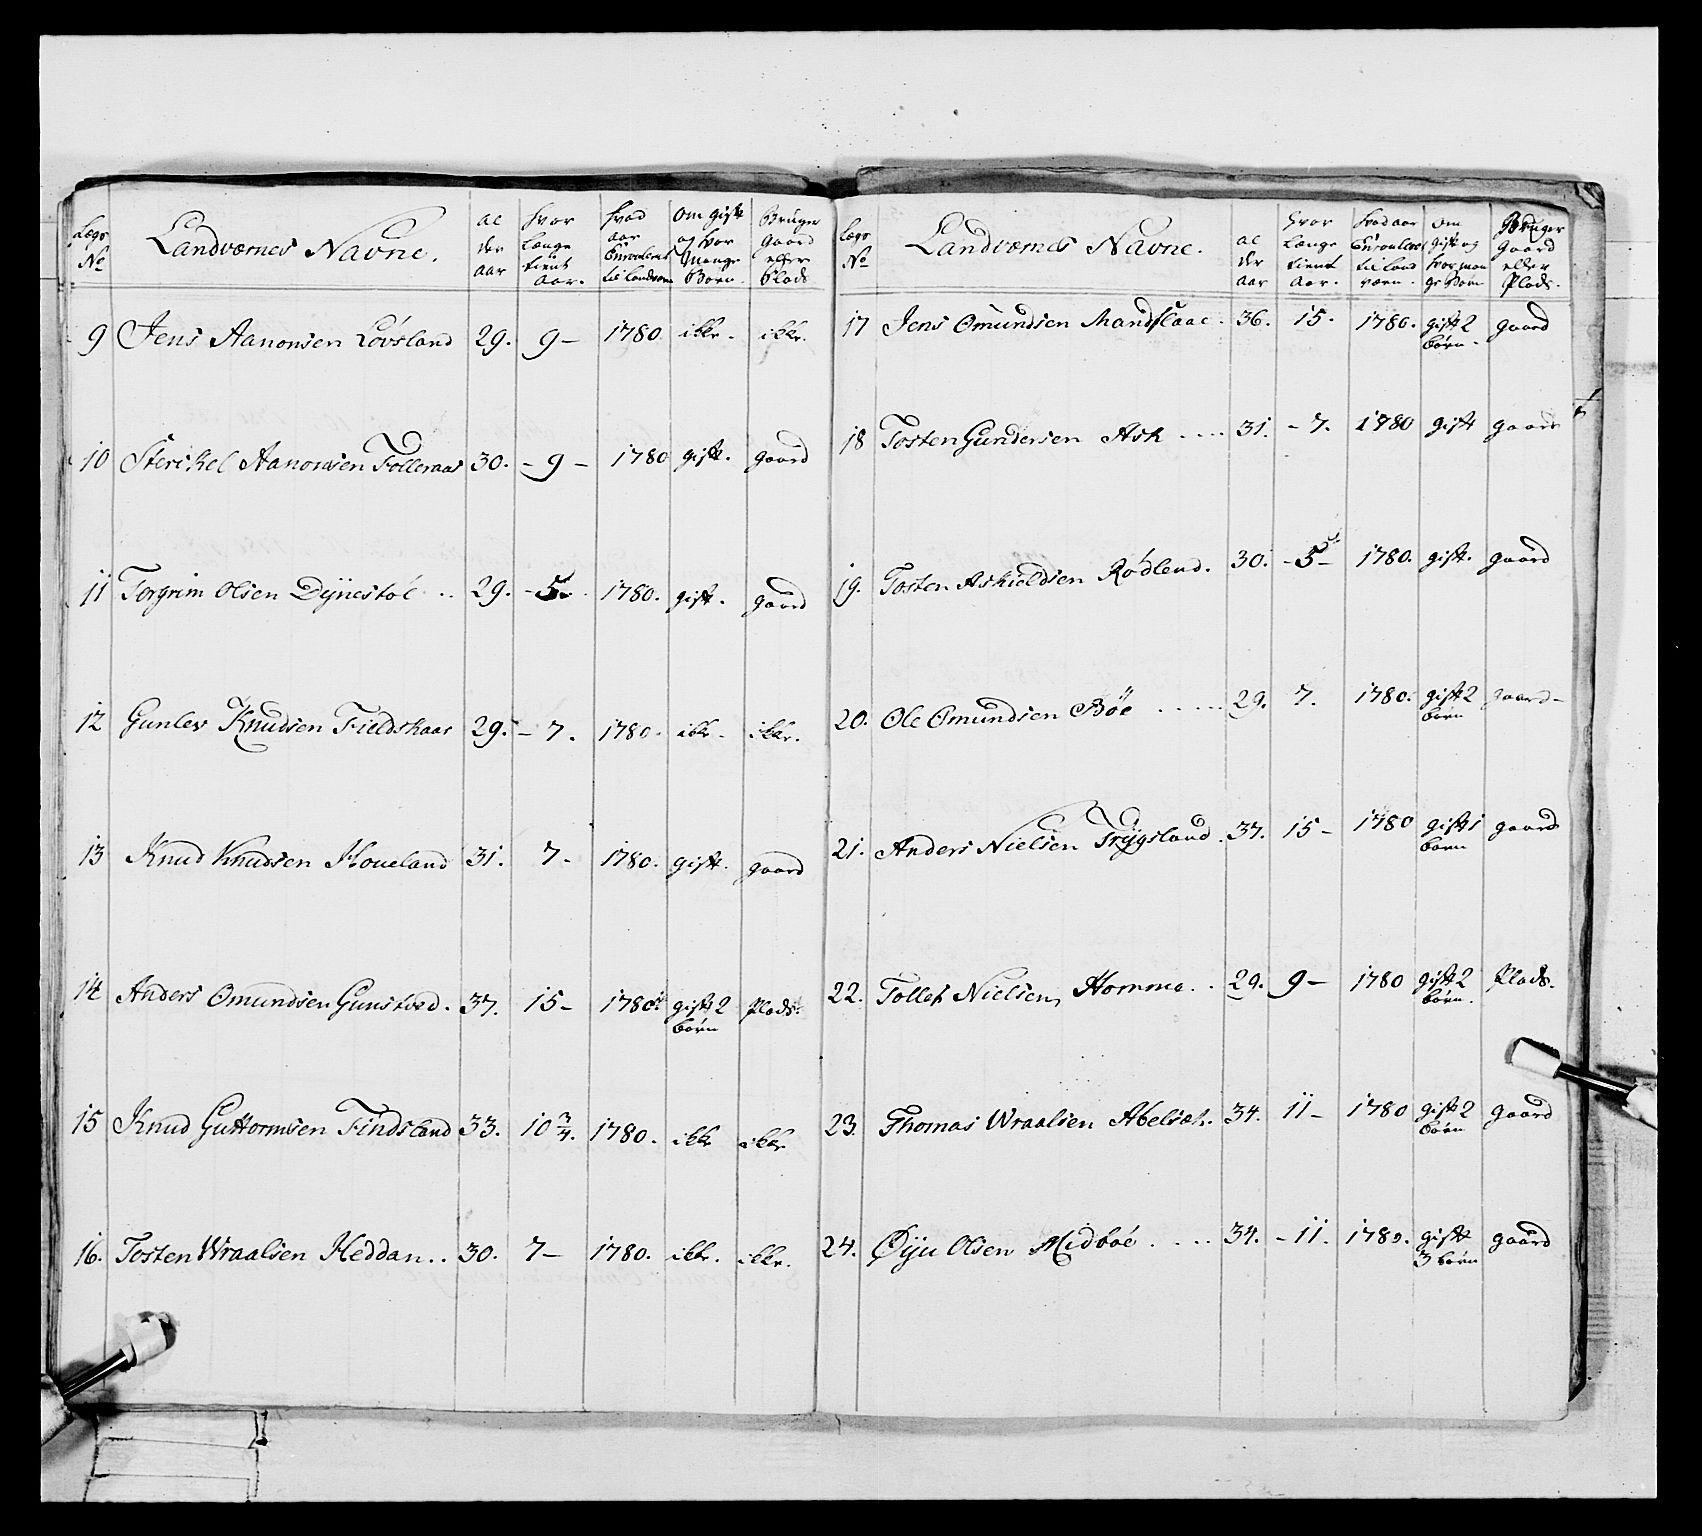 Lægs No | Landværnes Navne. | al der aar | hvor længe tient aar. | hvad aar Enroulert til landværn | om gift og hvor Mange Børn. | Bruger gaard eller Plads
9 | Jens Aanonsen Løvsland | 29. | 9 – | 1780 | ikke. | ikke.
10 | Sterckel Aanonsen Folleraas | 30. | – 9 – | 1780 | gift. | gaard
11 | Torgrim Olsen Dÿnestøl .. | 29. | – 5. | 1780. | gift. | gaard
12 | Gunlev Knudsen Fieldskaar | 29. | – 7. | 1780. | ikke. | ikke.
13 | Knud Knudsen Houeland | 31. | 7. | 1780. | gift. | gaard
14 | Anders Omundsen Gunstved. | 37. | 15 – | 1780. | gift 2 børn | Plads.
15 | Knud Guttormsen Findsland | 33. | 10 3/4. | 1780. | ikke | ikke
16. | Tosten Wraalsen Heddan .. | 30. | 7 – | 1780. | ikke. | ikke.
Lægs No | Landværnes Navne. | al der aar | hvor længe tient aar. | hvad aar Enroulert til land værn. | om gift og hvor man ge Børn | Bruger gaard eller Plads.
17 | Jens Omundsen Mandflaae. | 36. | 15. | 1780. | gift 2 børn. | gaard
18 | Tosten Gundersen Ask .... | 31. | – 7. | 1780 | gift | gaard
19. | Tosten Askieldsen Rødland. | 30. | – 5 – | 1780. | gift. | gaard
20. | Ole Omundsen Bøe ..... | 29. | 7. | 1780. | gift 2 børn | gaard –
21. | Anders Nielsen Trÿgsland. | 37. | 15 – | 1780 | gift 1 barn | gaard
22. | Tollef Nielsen, Homme .. | 29. | 9 – | 1780 | gift 2 børn. | Plads.
23. | Thomas Wraalsen Abelsæt. | 34. | 11 – | 1780 | gift 2 børn | gaard
24. | Øÿu Olsen Midbøe .... | 34. | – 11. | 1780. | gift 3 børn | gaard